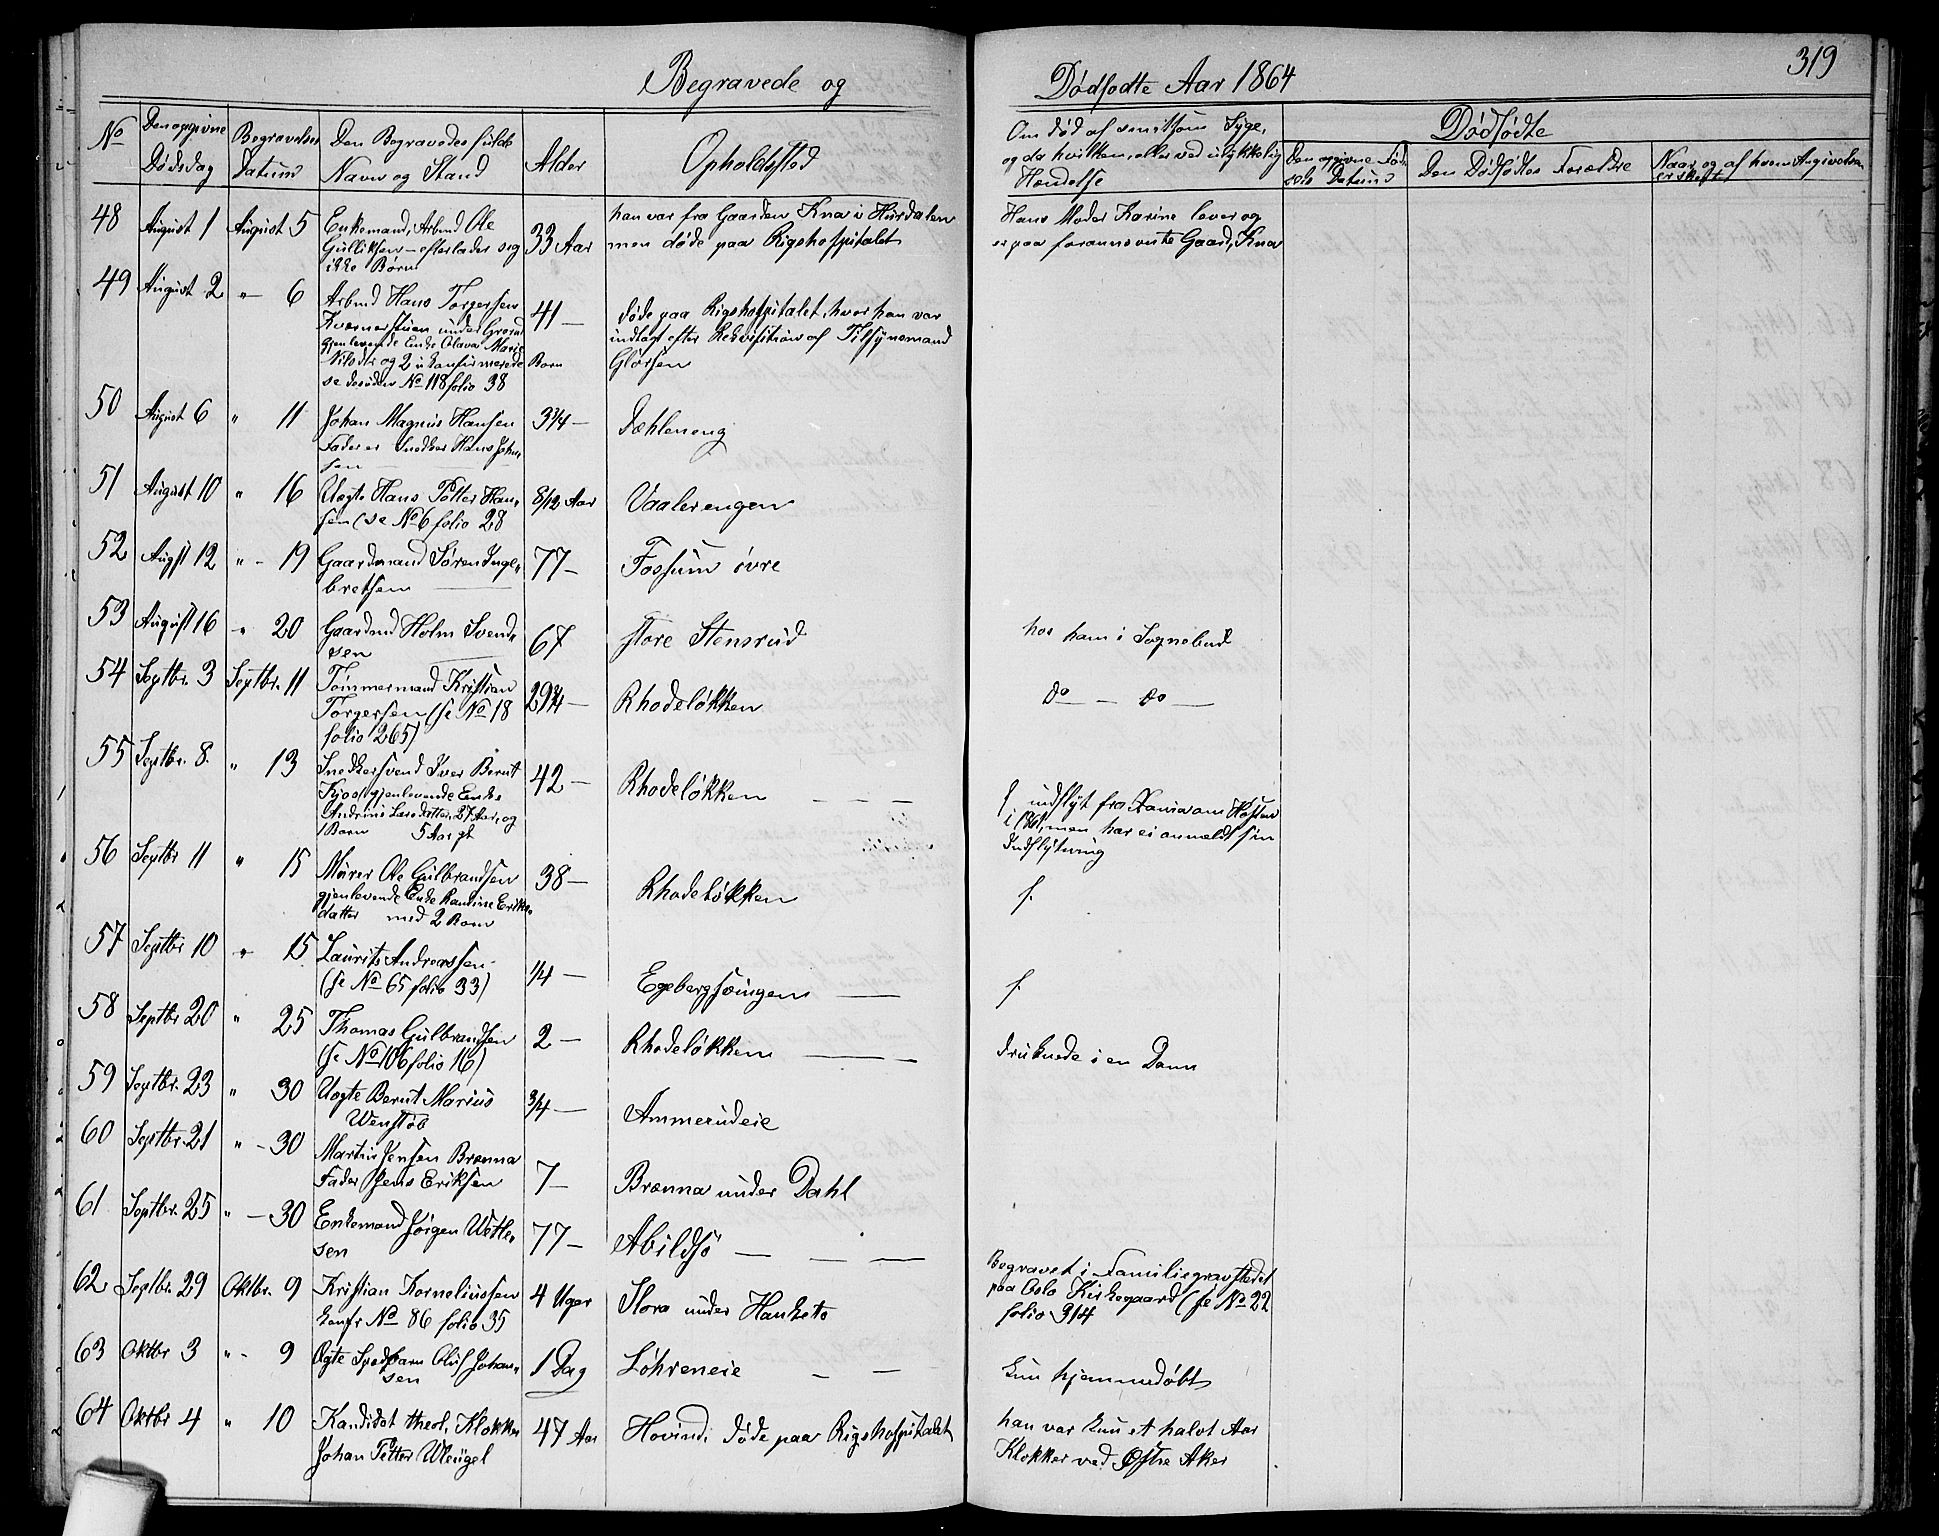 319
Begravede og Dødfødte Aar 1864
No
Den opgivne Dødsdag
Begravelses Datum
Den Begravedes fulde Navn og Stand
Alder
Opholdssted
Om død af smitsom Syge, og da hvilken, eller ved ulykkelig Hændelse
Dødfødte
Den opgivne Fødsels Datum
Den Dødfødtes Forældre
Naar og af hvem Angivelsen er skeet
48 August 1 August 5 Enkemand, Arbmd Ole 33 Aar han var fra Gaarden Knai Hurdalen Hans Moder Karine lever og
Gulliksen – efterlader sig men døde paa Rigshospitalet er paa forannævnte Gaard, Kna
ikke Børn
49 August 2 " – 6 Arbmd Hans Torgersen 41 – døde paa Rigshospitalet, hvor han var
Kværnerstuen under Grorud indlagt efter Rekvisition af Tilsynsmand
gjenlevende Enke Olava Marie Glørsen
Nilsdtr og 2 ukonfirmerede Børn
se desuden No 118 folio 38
50 August 6 " 11 Johan Magnus Hansen 3 3/4 – Dæhleneng
Fader er Snedker Hans Johnsen
51 August 10 " 16 Uægte Hans Petter Han- 8/12 Aar Vaalerengen
sen (se No 6 folio 28
52 Augst 12 " – 19 Gaardmand Søren Inge- 77 – Fossum øvre
bretsen
53 August 16 " 20 Gaardmd Holm Svend- 67 store Stensrud hos ham i Sognebud
sen
54 Septbr. 3 Septbr. 11 Tømmermand Kristian 29 3/4 – Rhodeløkken do – do –
Torgersen (se No 18
folio 265)
55 Septbr. 8. " 13 Snedkersvend Iver Bernt 42 – Rhodeløkken – – –
Kjos (gjenlevende Enke f indflyt fra Xania om Høsten
Andrine Larsdatter, 27 Aar, og i 1861, men har ei anmeldt sin
1 Barn 5 Aar gl. Indflytning
56 Septbr 11 " 15 Murer Ole Gulbrandsen 38 – Rhodeløkken f.
gjenlevende Enke Randine Eriks-
datter med 2 Børn
57 Septbr 10 " 15 Laurits Andreassen 1/4 – Egebergsvingen – f.
(se No 65 folio 33)
58 Septbr 20 " 25 Thomas Gulbrandsen 2 – Rhodeløkken – – druknede i en Dam
(se No 106 folio 16)
59 Septbr. 23 " 30 Uægte Bernt Marius 3/4 – Ammerudeie
Wenstøb
60 Septbr. 21 " – 30 Martin Jensen Brænna 7 – Brænna under Dahl
Fader Jens Eriksen
61 Septbr. 25 " – 30 Enkemand Jørgen Wetle- 77 – Abildsø – – –
sen
62 Septbr. 29 Oktbr. 9 Kristian Korneliussen 4 Uger Slora under Hauketo Begravet i Familiegravstedet
konfr No 86 folio 35 paa Oslo Kirkegaard (se No 22
folio 314
63 Oktbr 3 " – 9 Ægte Spædbarn Oluf Johan- 1 Dag Løhreneie – – kun hjemmedøbt
sen
64 Oktbr 4 " 10 Kandidat theol, Klokker 47 Aar Hovind; døde paa Rigshospitalet han var kun et halvt Aar
Johan Petter Wleugel Klokker ved Østre Aker